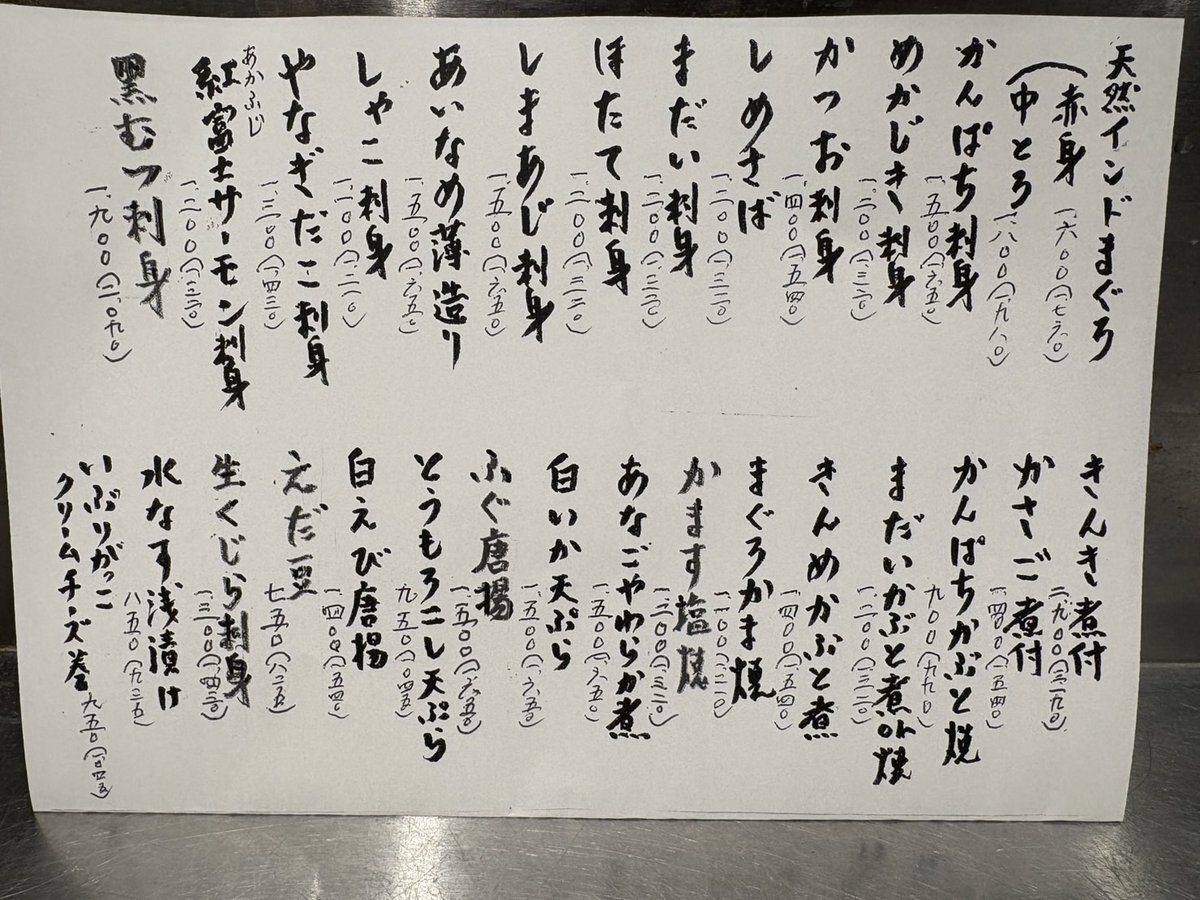 天然インドまぐろ
赤身 一、六〇〇(一、七六〇)
中とろ 一、八〇〇(一、九八〇)
かんぱち刺身 一、五〇〇(一、六五〇)
めかじき刺身 一、二〇〇(一、三二〇)
かつお刺身 一、四〇〇(一、五四〇)
しめさば 一、二〇〇(一、三二〇)
まだい刺身 一、二〇〇(一、三二〇)
ほたて刺身 一、二〇〇(一、三二〇)
しまあじ刺身 一、五〇〇(一、六五〇)
あいなめ薄造り 一、五〇〇(一、六五〇)
しゃこ刺身 一、一〇〇(一、二一〇)
やなぎだこ刺身 一、三〇〇(一、四三〇)
あかふじ
紅富士サーモン刺身 一、二〇〇(一、三二〇)
黒むつ刺身 一、九〇〇(二、〇九〇)
きんき煮付 二、九〇〇(三、一九〇)
かさご煮付 一、四〇〇(一、五四〇)
かんぱちかぶと焼 九〇〇(九九〇)
まだいかぶと煮or焼 一、二〇〇(一、三二〇)
きんめかぶと煮 一、四〇〇(一、五四〇)
まぐろかま焼 一、一〇〇(一、二一〇)
かます塩焼 一、二〇〇(一、三二〇)
あなごやわらか煮 一、五〇〇(一、六五〇)
白いか天ぷら 一、五〇〇(一、六五〇)
ふぐ唐揚 一、五〇〇(一、六五〇)
とうもろこし天ぷら 九五〇(一、〇四五)
白えび唐揚 一、四〇〇(一、五四〇)
えだ豆 七五〇(八二五)
生くじら刺身 一、三〇〇(一、四三〇)
水なす浅漬け 八五〇(九三五)
いぶりがっこ
クリームチーズ巻 九五〇(一、〇四五)